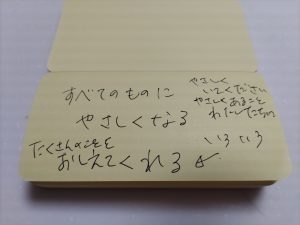 すべてのものに
やさしくなる
たくさんのことを
おしえてくれる
やさしく
いてください
やさしくあること
わたしたちの
いろいろ